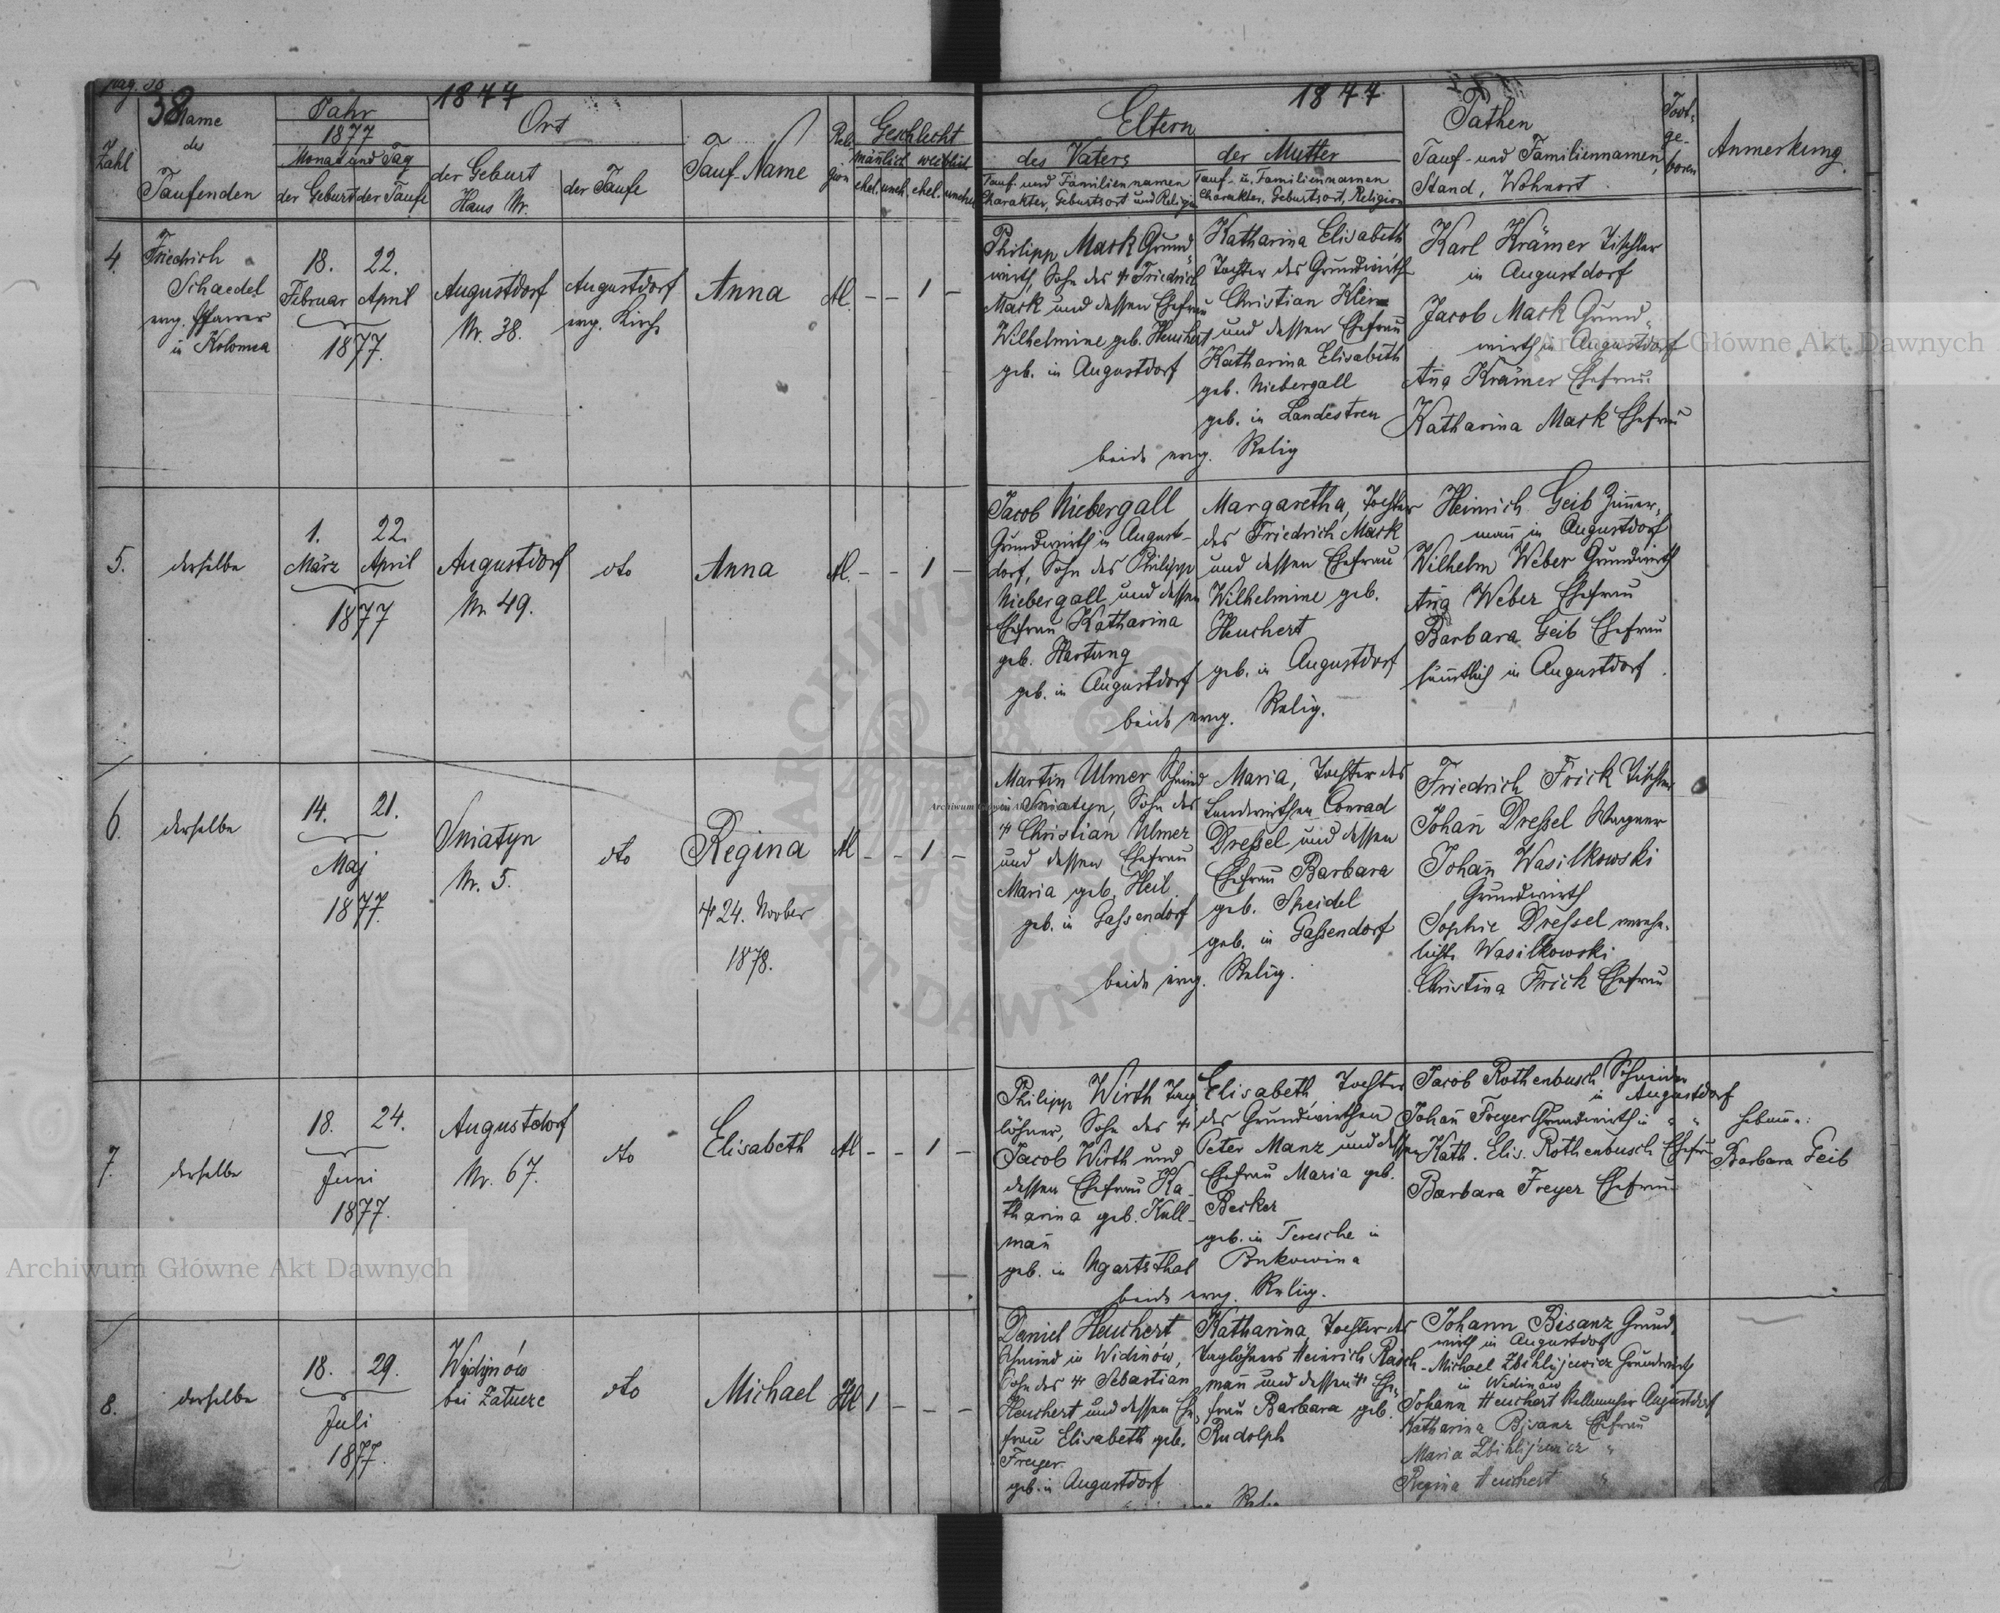 pag. 38
38
1877
1877
Zahl
Name
des
Taufenden
Jahr
1877
Monat und Tag
der Geburt
der Taufe
Ort
der Geburt
Haus Nr.
der Taufe
Tauf-Name
Reli-
gion
Geschlecht
mänlich weiblich
ehel. uneh. ehel. unehel.
Eltern
des Vaters
Tauf- und Familiennamen
Charakter, Geburtsort und Religion
der Mutter
Tauf- u. Familiennamen
Charakter, Geburtsort, Religion
Pathen
Tauf- und Familiennamen,
Stand, Wohnort.
Tod-
ge-
boren
Anmerkung.
4.
Friedrich
Schaedel
evg. Pfarrer
in Kolomea
18. 22.
Februar April
1877.
Augustdorf
Nr. 38.
Augustdorf
evg. Kirche
Anna
Al.
- - 1 -
Philipp Mack Grund-
wirth, Sohn des Friedrich
Mack und dessen Ehefrau
Wilhelmine geb. Heuchert
geb. in Augustdorf
Katharina Elisabeth
Tochter des Grundwirth
Christian Klein
und dessen Ehefrau
Katharina Elisabeth
geb. Niebergall
geb. in Landestreu
beide evg. Relig
Karl Krämer Tischler
in Augustdorf
Jacob Mack Grund-
wirth in Augustdorf
Aña Krämer Ehefrau
Katharina Mack Ehefrau
5.
derselbe
1. 22.
März April
1877
Augustdorf
Nr. 49.
dto
Anna
Al.
- - 1 -
Jacob Niebergall
Grundwirth in August-
dorf, Sohn des Philipp
Niebergall und dessen
Ehefrau Katharina
geb. Hartung
geb. in Augustdorf
Margaretha, Tochter
des Friedrich Mack
und dessen Ehefrau
Wilhelmine geb.
Heuchert
geb. in Augustdorf
beide evg. Relig.
Heinrich Geib Zimmer-
mañ in Augustdorf
Wilhelm Weber Grundwirth
Aña Weber Ehefrau
Barbara Geib Ehefrau
sämtlich in Augustdorf.
6.
derselbe
14. 21.
Maj
1877.
Sniatyn
Nr. 5.
dto
Regina
24. Novber
1878.
Al
- - 1 -
Martin Ulmer Schmied
in Sniatyn, Sohn des
Christian Ulmer
und dessen Ehefrau
Maria geb. Heil
geb. in Gassendorf
Maria, Tochter des
Landwirthen Conrad
Dreßel und dessen
Ehefrau Barbara
geb. Speidel
geb. in Gassendorf
beide evg. Relig.
Friedrich Frick Tischler
Johañ Dreßel Wagner
Johañ Wasilkowski
Grundwirth
Sophie Dreßel verehe-
lichte Wasilkowski
Christina Frick Ehefrau
7.
derselbe
18. 24.
Juni
1877.
Augustdorf
Nr. 67.
dto
Elisabeth
Al
- - 1 -
Philipp Wirth Tag-
löhner, Sohn des
Jacob Wirth und
dessen Ehefrau Ka-
tharina geb. Kull-
mañ
geb. in Ugartsthal
Elisabeth, Tochter
des Grundwirthen
Peter Manz und dessen
Ehefrau Maria geb.
Becker
geb. in Teresche in
Bukowina
beide evng. Relig.
Jacob Rothenbusch Schneider
in Augustdorf
Johañ Freyer Grundwirth in " "
Kath. Elis. Rothenbusch Ehefrau
Barbara Freyer Ehefrau
Hebame:
Barbara Geib
8.
derselbe
18. 29.
Juli
1877.
Wydynów
bei Załucze
dto
Michael
Al
1 - - -
Daniel Heuchert
Schmied in Widinów,
Sohn des Sebastian
Heuchert und dessen Ehe-
frau Elisabeth geb.
Freyer
geb. in Augustdorf
Katharina, Tochter des
Taglöhners Heinrich Rasch-
mañ und dessen Ehe-
frau Barbara geb.
Rudolph
Relig
Johann Bisanz Grund-
wirth in Augustdorf
Michael Zbihlyjewicz Grundwirth
in Widinów
Johann Heuchert Augustdorf
Katharina Bisanz Ehefrau
Maria Zbihlyjewicz "
Regina Heuchert "
Archiwum Główne Akt Dawnych
Archiwum Główne Akt Dawnych
ARCHIWUM GŁÓWNE
AKT DAWNYCH